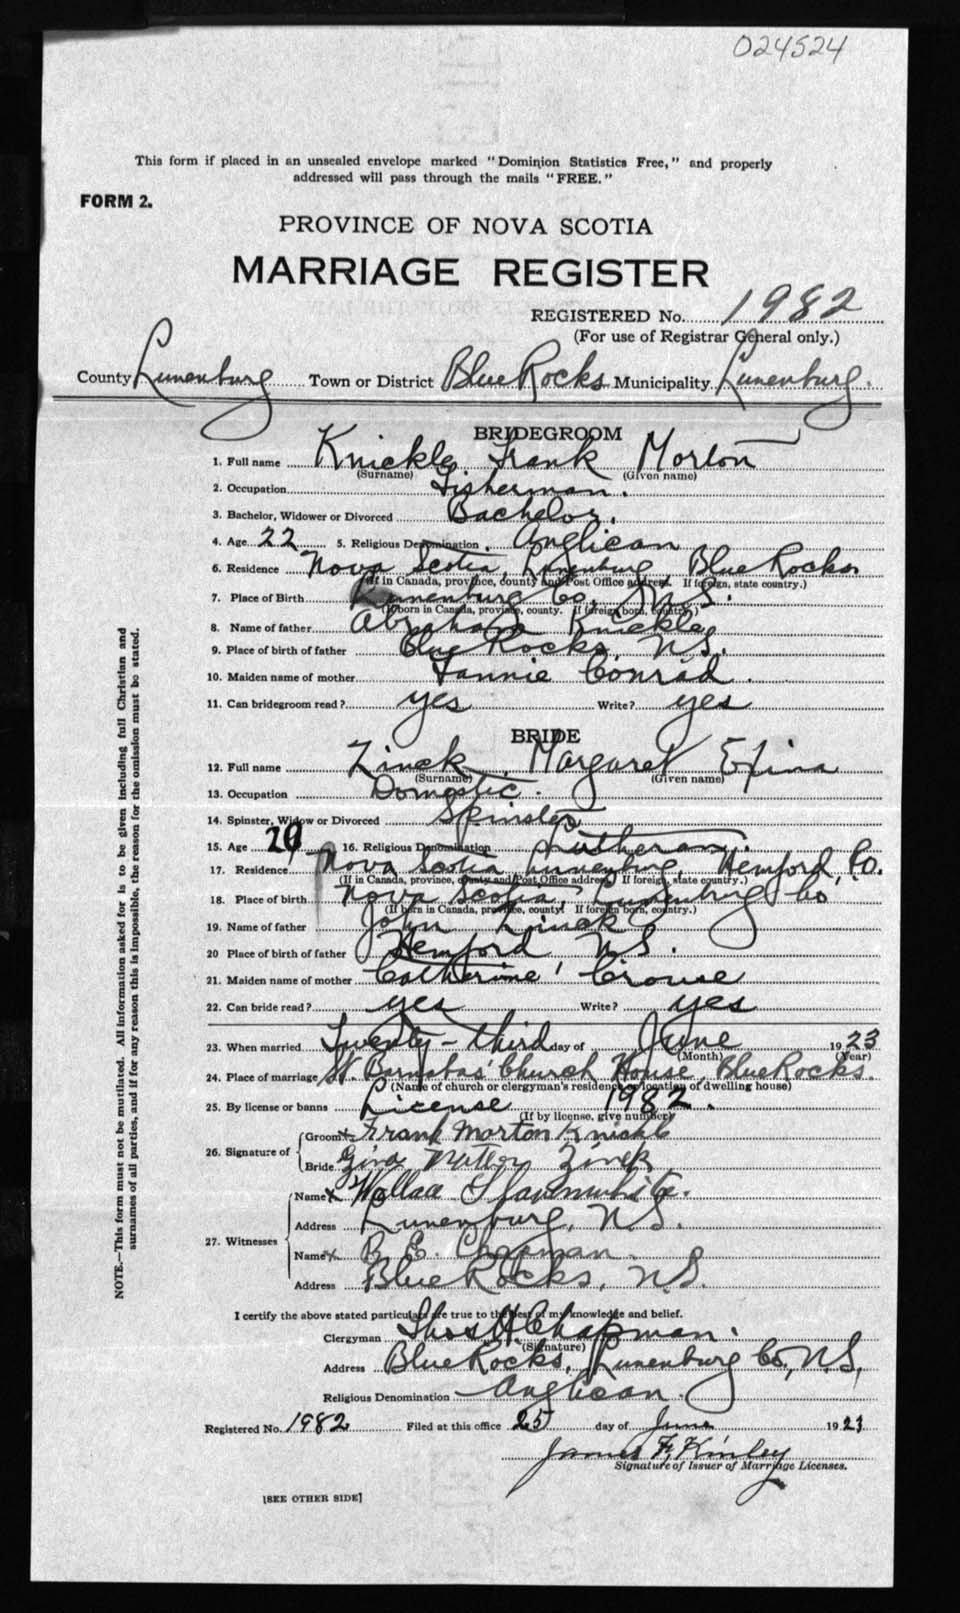 024524
This form if placed in an unsealed envelope marked "Dominion Statistics Free," and properly
addressed will pass through the mails "FREE."
FORM 2.
PROVINCE OF NOVA SCOTIA
MARRIAGE REGISTER
REGISTERED No. 1982
(For use of Registrar General only.)
County Lunenburg Town or District Blue Rocks Municipality Lunenburg.
BRIDEGROOM
1. Full name Knickle Frank Morton
(Surname) (Given name)
2. Occupation Fisherman.
3. Bachelor, Widower or Divorced Bachelor.
4. Age 22 5. Religious Denomination Anglican
6. Residence Nova Scotia, Lunenburg Blue Rocks
(If in Canada, province, county and Post Office address. If foreign, state country.)
7. Place of Birth Lunenburg Co. N.S.
(If born in Canada, province, county. If foreign born, country.)
8. Name of father Abraham Knickle
9. Place of birth of father Blue Rocks, N.S.
10. Maiden name of mother Fannie Conrad
11. Can bridegroom read? yes Write? yes
BRIDE
12. Full name Zinck Margaret
(Surname) (Given name)
13. Occupation Domestic.
14. Spinster, Widow or Divorced Spinster
15. Age 16. Religious Denomination Lutheran.
17. Residence Nova Scotia Lunenburg, Hemford, Co.
(If in Canada, province, county and Post Office address If foreign, state country.)
18. Place of birth Nova Scotia, Lunenburg Co
(If born in Canada, province, county. If foreign born, country.)
19. Name of father John Zinck
20 Place of birth of father Hemford N.S.
21. Maiden name of mother Catherine Crouse
22. Can bride read? yes Write? yes
23. When married Twenty-third day of June 1923
(Month) (Year)
24. Place of marriage St. Barnabas' Church House, Blue Rocks.
(Name of church or clergyman's residence or location of dwelling house)
25. By license or banns License 1982.
(If by license, give number)
26. Signature of
Groom x Frank Morton Knickle
Bride Zinck
27. Witnesses
Name x
Address Lunenburg, N.S.
Name x B. E. Chapman
Address Blue Rocks, N.S.
I certify the above stated particulars are true to the best of my knowledge and belief.
Clergyman Thos H Chapman.
(Signature)
Address Blue Rocks, Lunenburg Co., N.S.
Religious Denomination Anglican.
Registered No. 1982 Filed at this office 25 day of June 1923
James F. Kinley
Signature of Issuer of Marriage Licenses.
[SEE OTHER SIDE]
NOTE.—This form must not be mutilated. All information asked for is to be given including full Christian and
surnames of all parties, and if for any reason this is impossible, the reason for the omission must be stated.